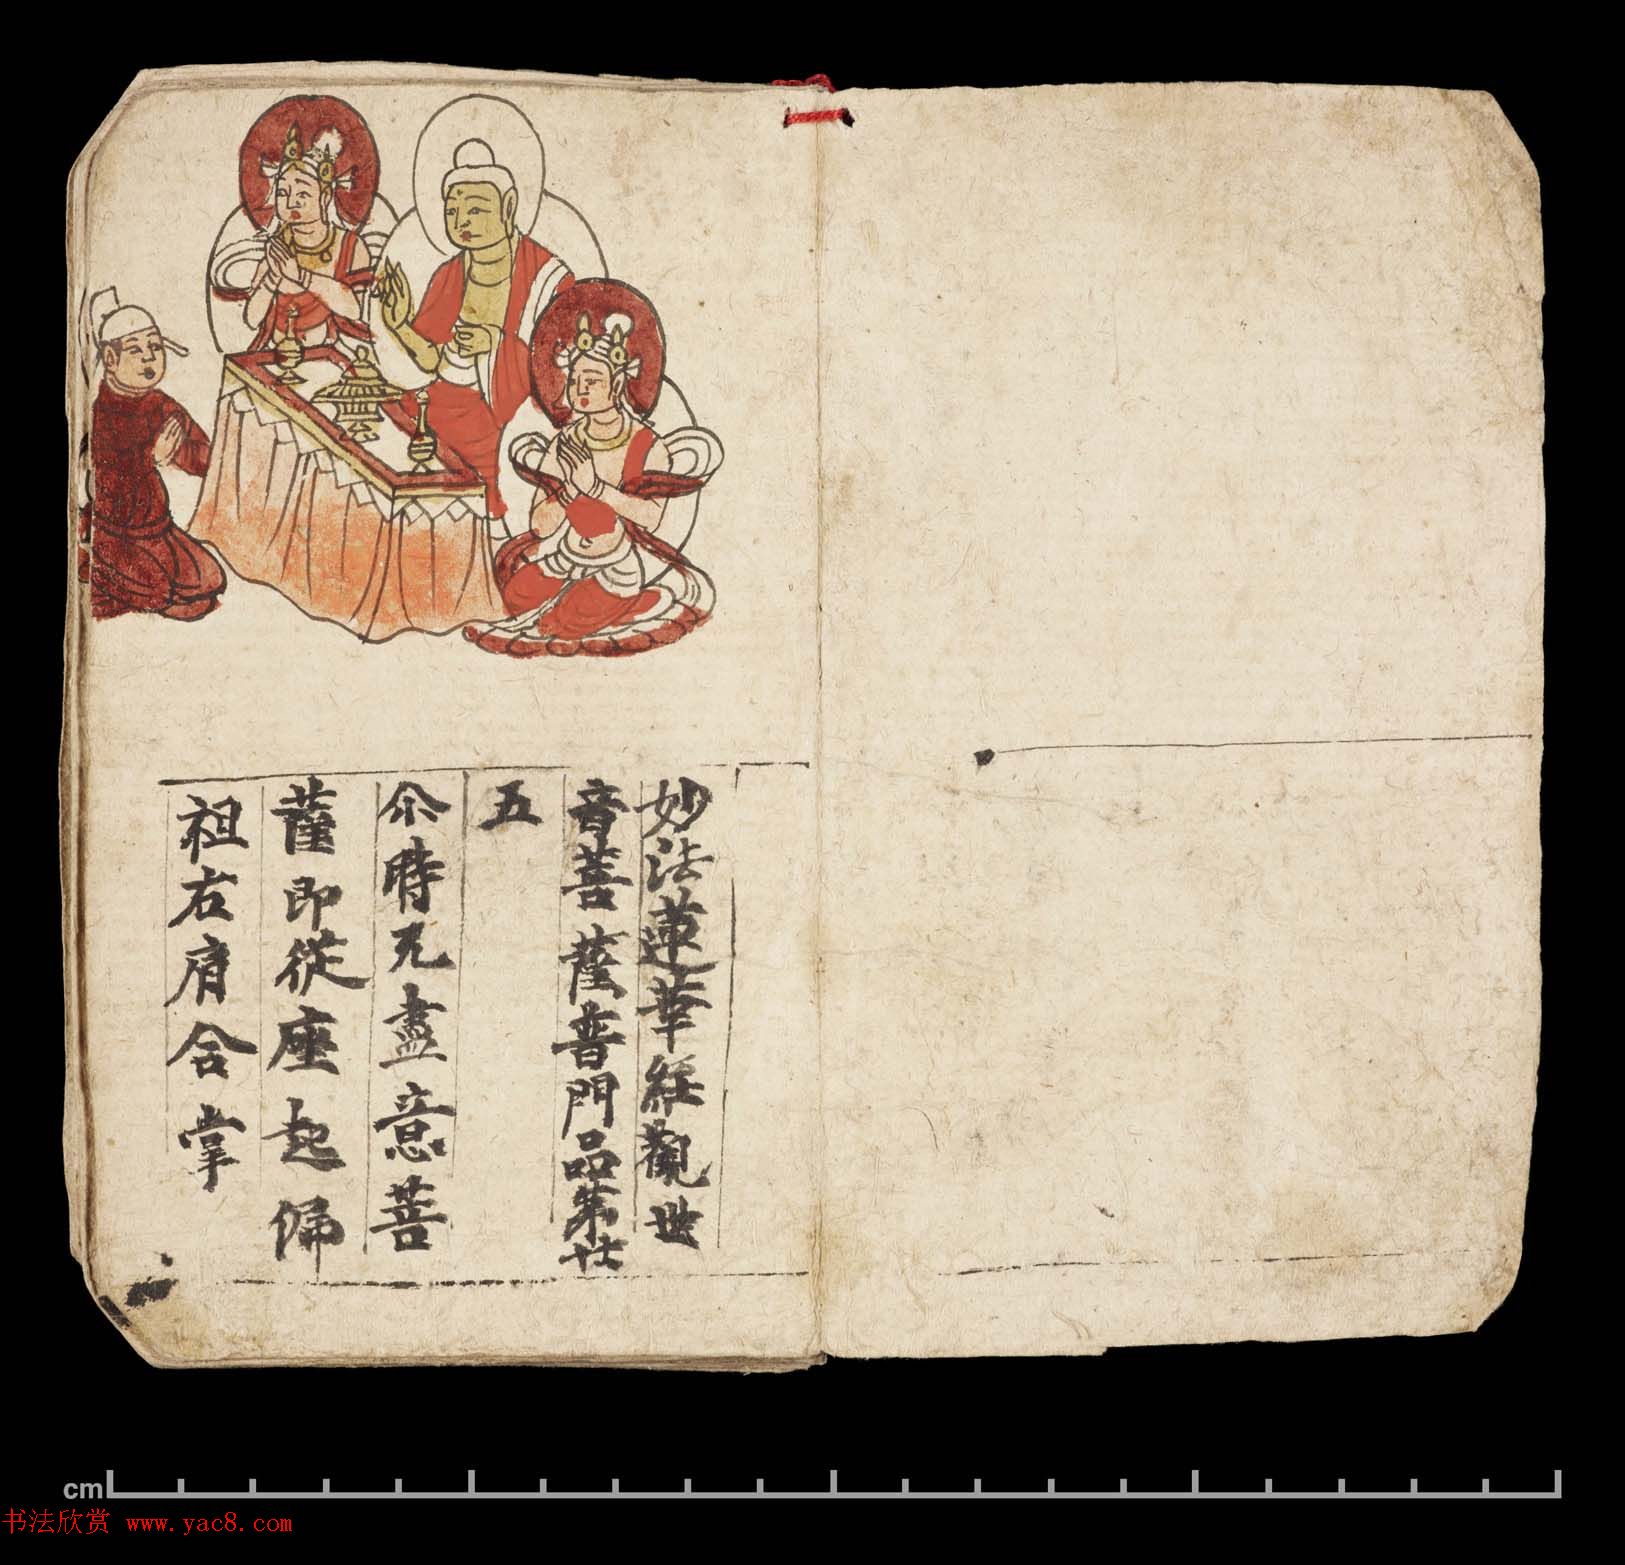 妙法蓮華經觀世
音菩薩普門品第廿
五
尒時无盡意菩
薩即從座起偏
袒右肩合掌
cm
书法欣赏 www.yac8.com